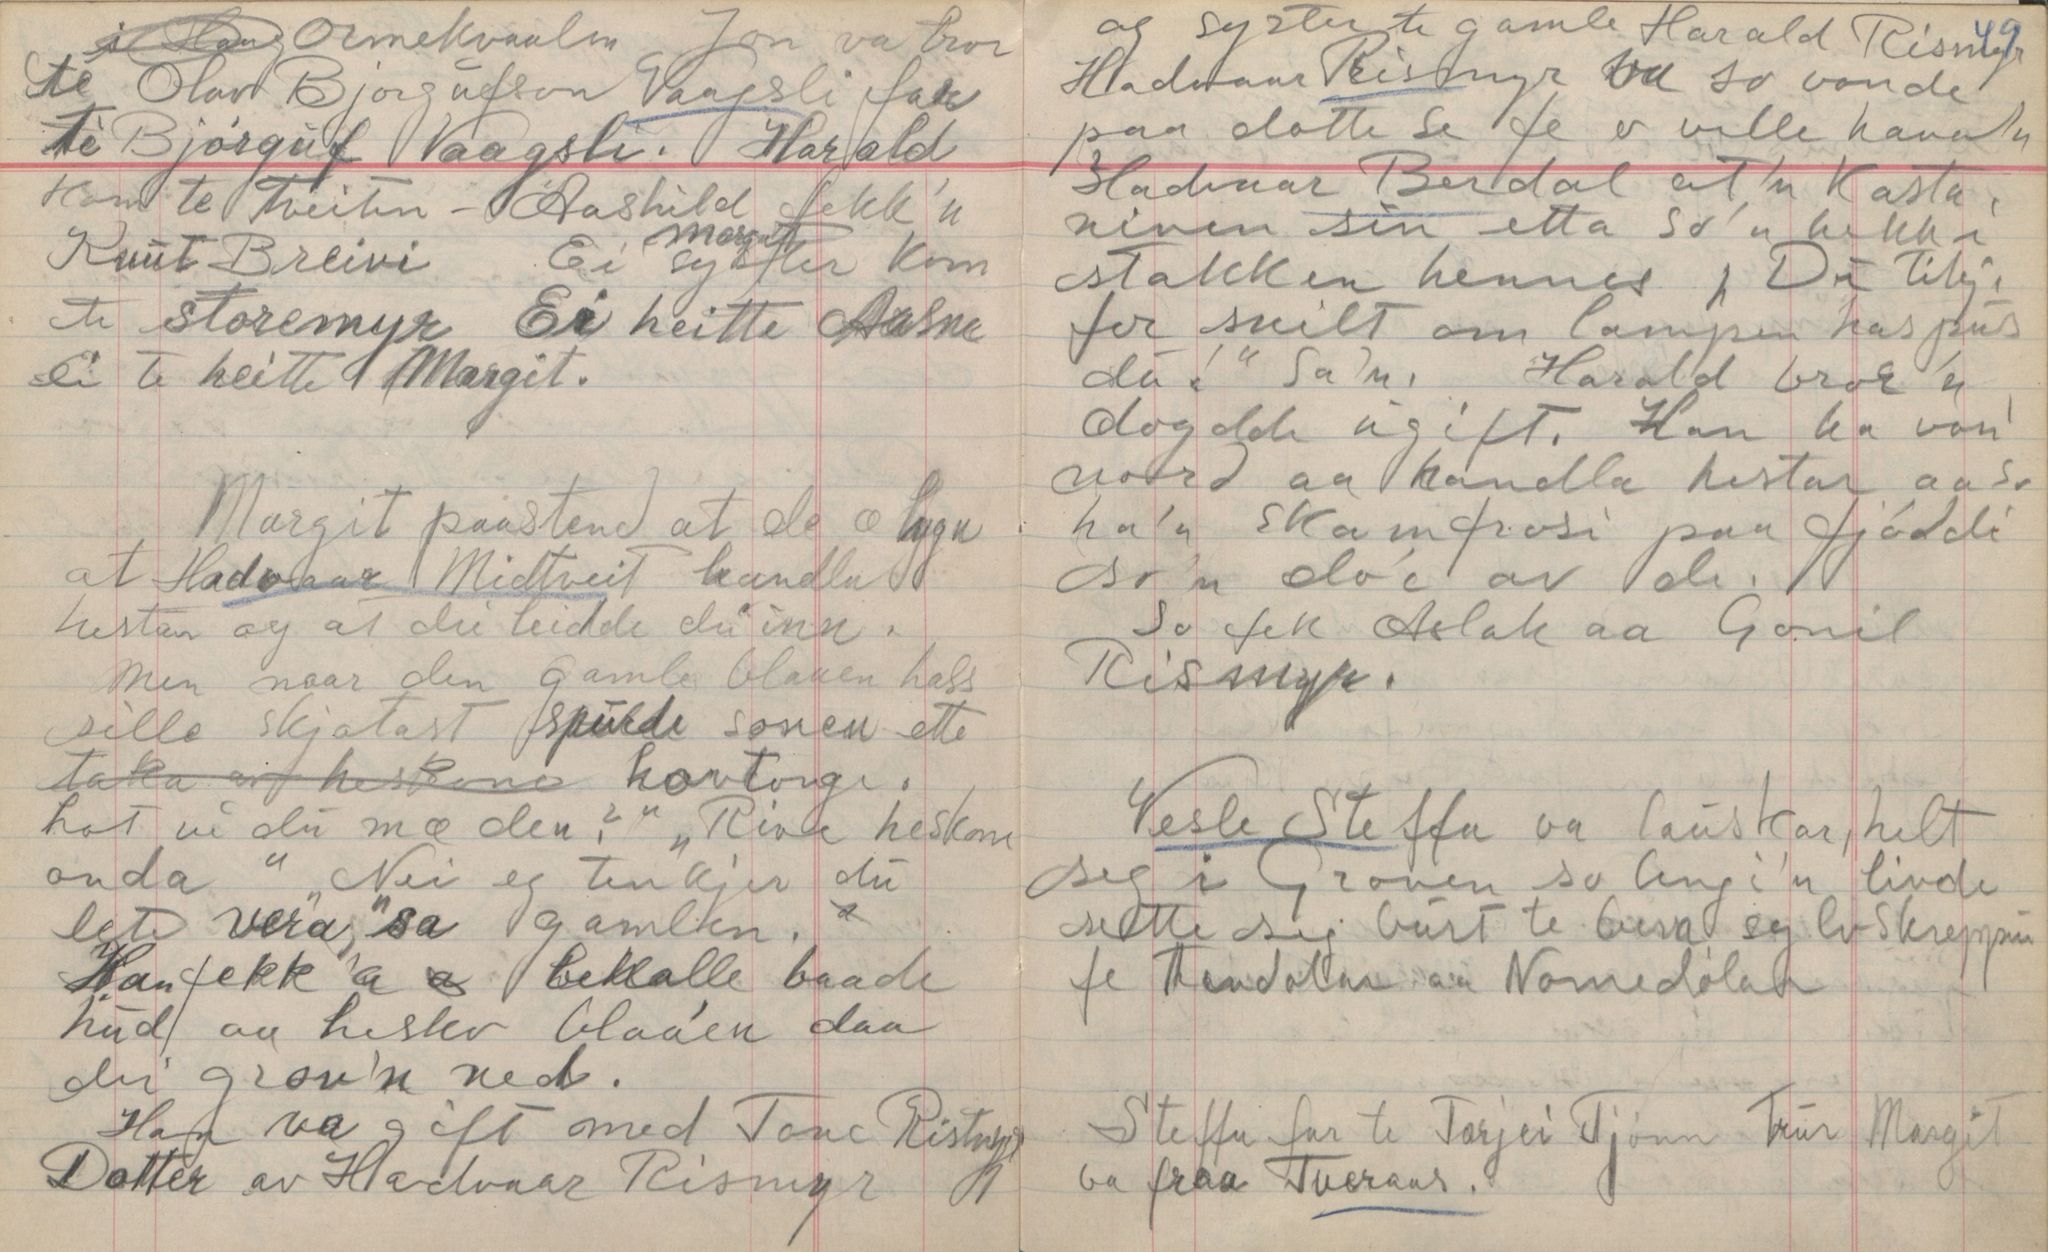 Ormekvaalen Jon va bror
te Olav Bjørgufson Vaagsli far
te Bjørgùf Vaagsli. Harald
kom te Tveiten - Aashild fekk'n
Knùt Breivi Ei syster Margit kom
te Storemyr Ei heitte Aasne
ei te heitte Margit.
Margit paastend at de æ lygn
at Hadvaar Midtveit handla
hestar og at dei leidde dei inn.
Men naar den gamle blakken hass
sille skjotast spùrde sonen ette
taka av heskone hovtonge.
hot vi dù mæ den?" "Riva heskone
onda" "Nei eg tenkjer dù
lete vera," sa gamlen.
Han fekk'a bekalle baade
hùd aa hesko blaa'en daa
dei grov'n ned.
Han va gift med Tone Rismyr
Dotter av Hadvaar Rismyr
og syster te gamle Harald Rismyr 49
Hadvaar Rismyr va so vonde
paa dotte se fe o ville hava'n
Hadvaar Berdal at'n kasta
niven sin etta so'n hekk i
stakken hennes, Dù tikj
for snilt om lampen has pùs
dù!" Sa'n. Harald bror'n
døgdde ùgift. Han ha vori
nord aa handla hestar aa so
ha'n skamfrosi paa fjøddi
so'n do'e av de.
So fek Aslak aa Gonil
Rismyr.
Vesle Steffa va laùskar, helt
seg i Groven so lengi'n livde
sette seg bùrt te bera sylvskreppùn
fe Tindølan aa Nomedølan
Steffa far te Tarjei Tjønn trùr Margit
va fraa Tveraas.